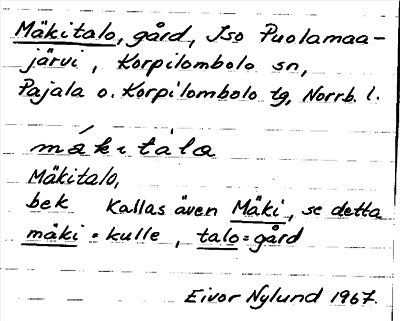 Mäkitalo, gård, Iso Puolamaa-
järvi, Korpilombolo sn,
Pajala o. Korpilombolo tg, Norrb. l.
mákità​lo
Mäkitalo,
bek Kallas även Mäki, se detta
mäki = kulle, talo = gård
Eivor Nylund 1967.